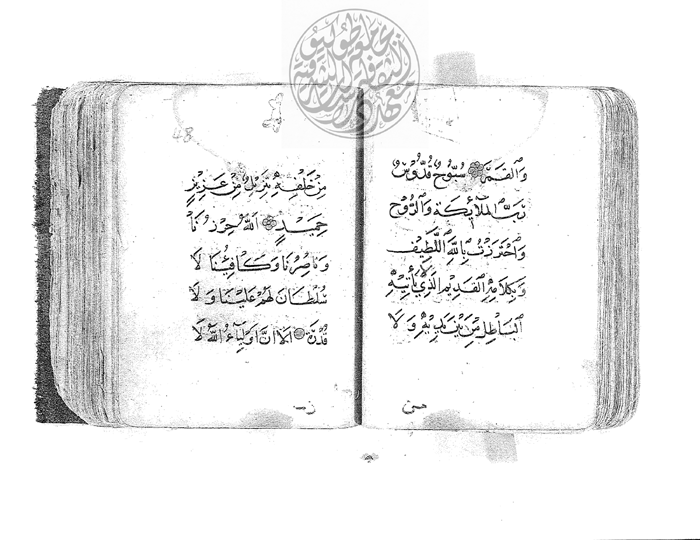 وَالقَمَرِ سُبُّوحٌ قُدُّوسٌ
رَبُّ المَلَآئِكَةِ وَالرُّوْحِ
وَاحْتَرَزْتُ بِاللّٰهِ اللَّطِيْفِ
وَبِكَلَامِهِ القَدِيْمِ الَّذِيْ لَا يَأْتِيْهِ
البَاطِلُ مِنْ بَيْنِ يَدَيْهِ وَلَا
مِنْ خَلْفِهِ تَنْزِيْلٌ مِنْ عَزِيْزٍ
حَمِيْدٍ اَللّٰهُ حِرْزُنَا
وَنَاصِرُنَا وَكَافِيْنَا لَا
سُلْطَانَ لَهُمْ عَلَيْنَا وَلَا
قُدْرَةَ اَلَا اِنَّ اَوْلِيَآءَ اللّٰهِ لَا
48